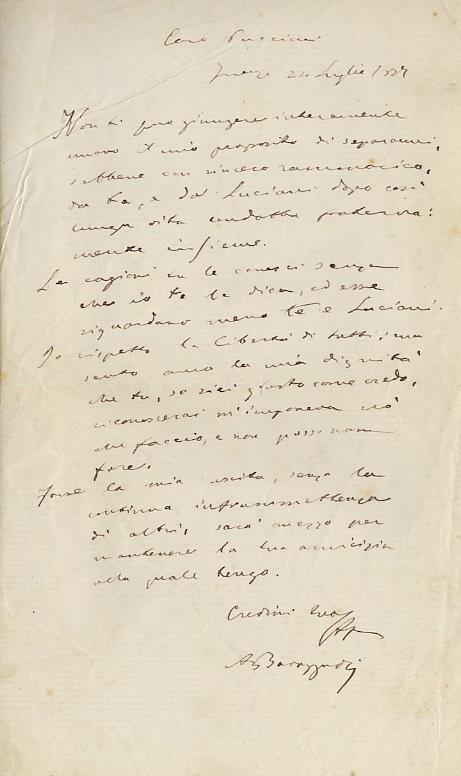 Caro Pucciani
24 Luglio
Non ti può giungere interamente
nuovo il mio proposito di separarmi,
sebbene con sincero rammarico,
da te, e da Luciani dopo così
lunga vita condotta fraterna:
mente insieme.
Le cagioni tu le conosci senza
che io te le dica, ed esse
riguardano meno te e Luciani.
Io rispetto la libertà di tutti; ma
sento anco la mia dignità
che tu, se sei giusto come credo,
riconoscerai m'imponeva ciò
che faccio, e non posso non
fare.
Forse la mia uscita, senza la
continua inframmettenza
di altri, sarà mezzo per
mantenere la tua amicizia
alla quale tengo.
Credimi